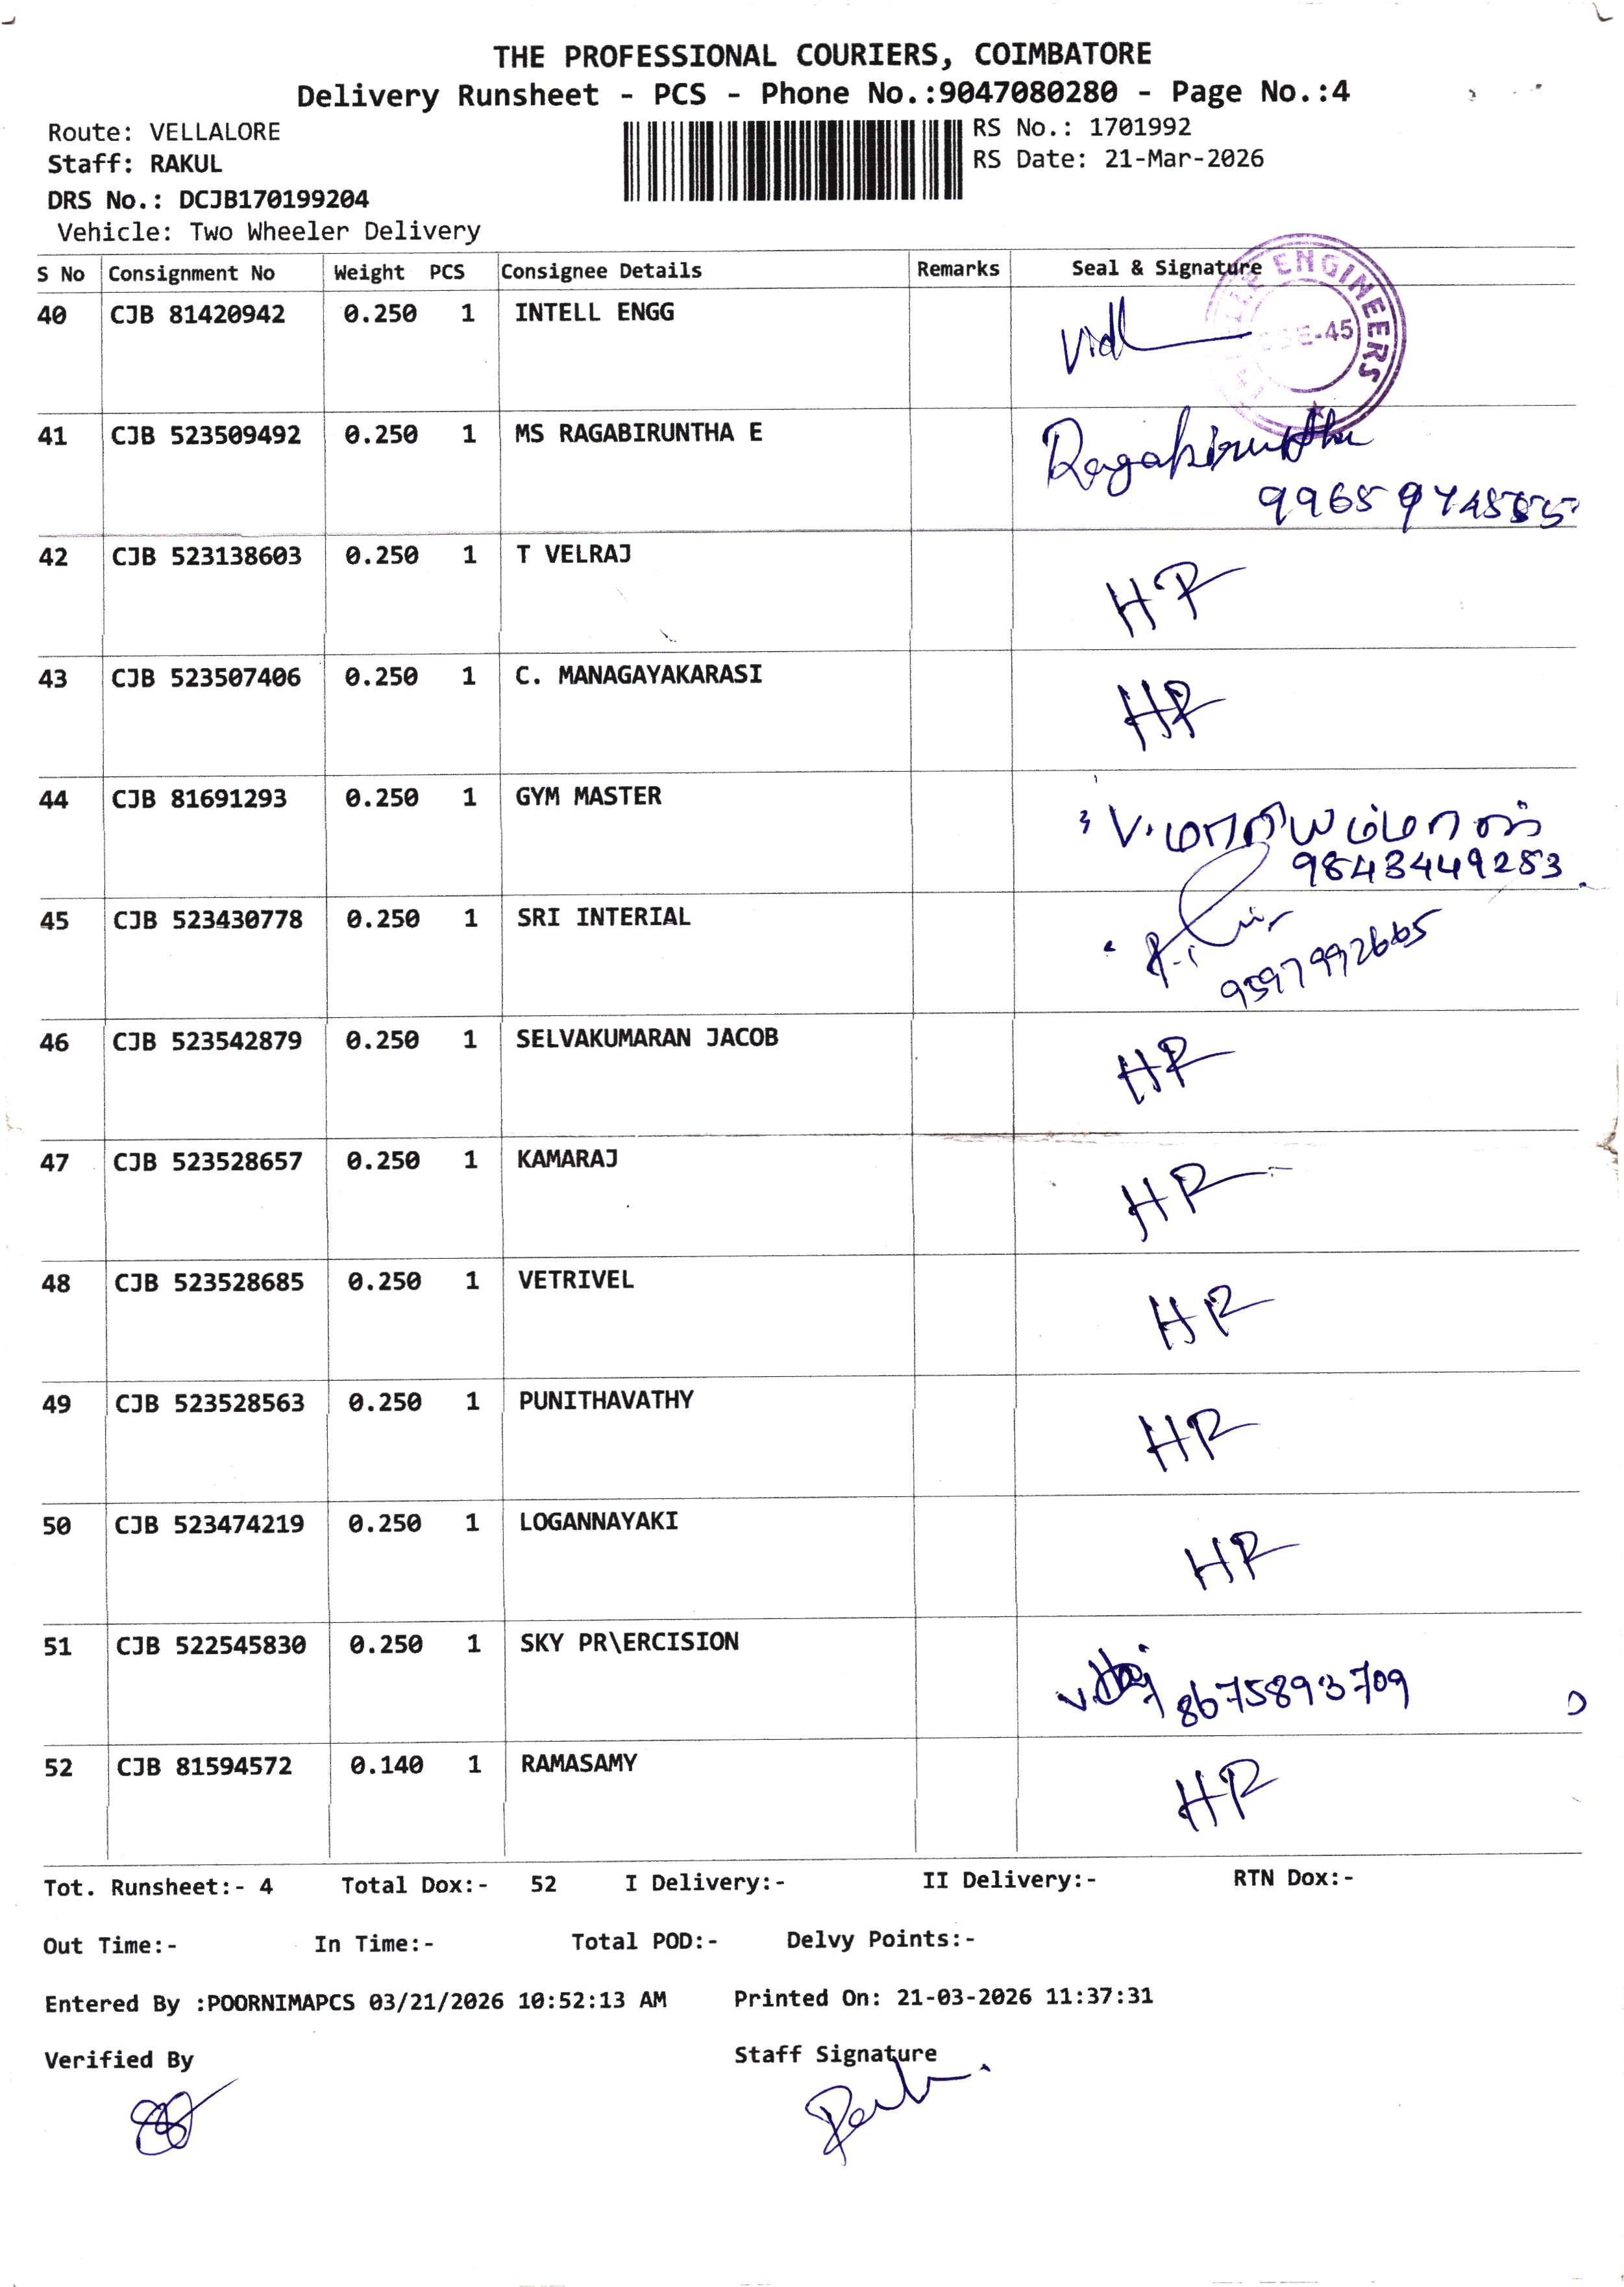 THE PROFESSIONAL COURIERS, COIMBATORE
Delivery Runsheet - PCS - Phone No.:9047080280 - Page No.:4
Route: VELLALORE
RS No.: 1701992
Staff: RAKUL
RS Date: 21-Mar-2026
DRS No.: DCJB170199204
Vehicle: Two Wheeler Delivery
S No Consignment No Weight PCS Consignee Details Remarks Seal & Signature
ENGINEERS
40 CJB 81420942 0.250 1 INTELL ENGG
-45
41 CJB 523509492 0.250 1 MS RAGABIRUNTHA E
Ragabiruntha
42 CJB 523138603 0.250 1 T VELRAJ HR
43 CJB 523507406 0.250 1 C. MANAGAYAKARASI HR
44 CJB 81691293 0.250 1 GYM MASTER V. மாரியம்மாள்
9843449283
45 CJB 523430778 0.250 1 SRI INTERIAL
9597992665
46 CJB 523542879 0.250 1 SELVAKUMARAN JACOB HR
47 CJB 523528657 0.250 1 KAMARAJ HR
48 CJB 523528685 0.250 1 VETRIVEL HR
49 CJB 523528563 0.250 1 PUNITHAVATHY HR
50 CJB 523474219 0.250 1 LOGANNAYAKI HR
51 CJB 522545830 0.250 1 SKY PR\ERCISION 8675893709
52 CJB 81594572 0.140 1 RAMASAMY HR
Tot. Runsheet:- 4 Total Dox:- 52 I Delivery:- II Delivery:- RTN Dox:-
Out Time:- In Time:- Total POD:- Delvy Points:-
Entered By :POORNIMAPCS 03/21/2026 10:52:13 AM Printed On: 21-03-2026 11:37:31
Verified By Staff Signature